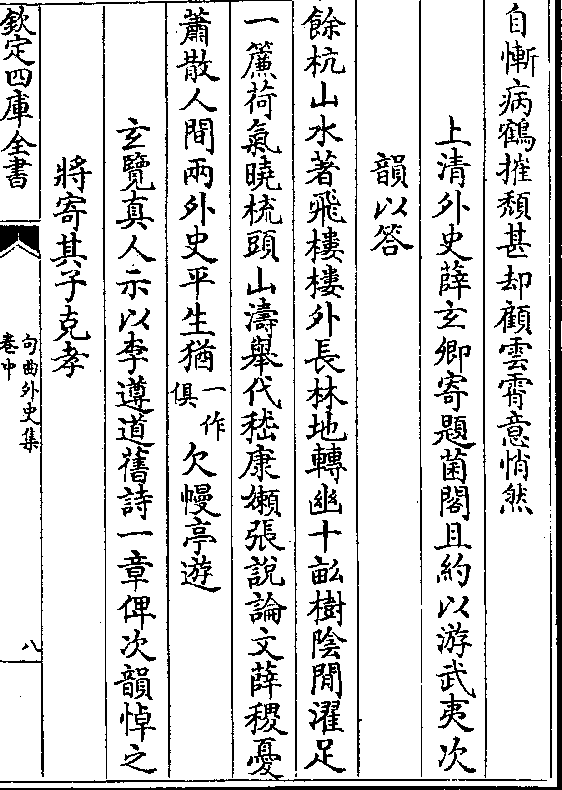 自慚病鶴摧頽甚却顧雲霄意悄然
上清外史薛玄卿寄題菌閣且約以游武夷次
韻以答
餘杭山水著飛樓樓外長林地轉幽十畝樹陰閒濯足
一簾荷氣曉梳頭山濤舉代嵇康嬾張說論文薛稷憂
蕭散人間兩外史平生猶一作俱欠幔亭遊
玄覽真人示以李遵道舊詩一章俾次韻悼之
將寄其子克孝
欽定四庫全書
句曲外史集
卷中
八